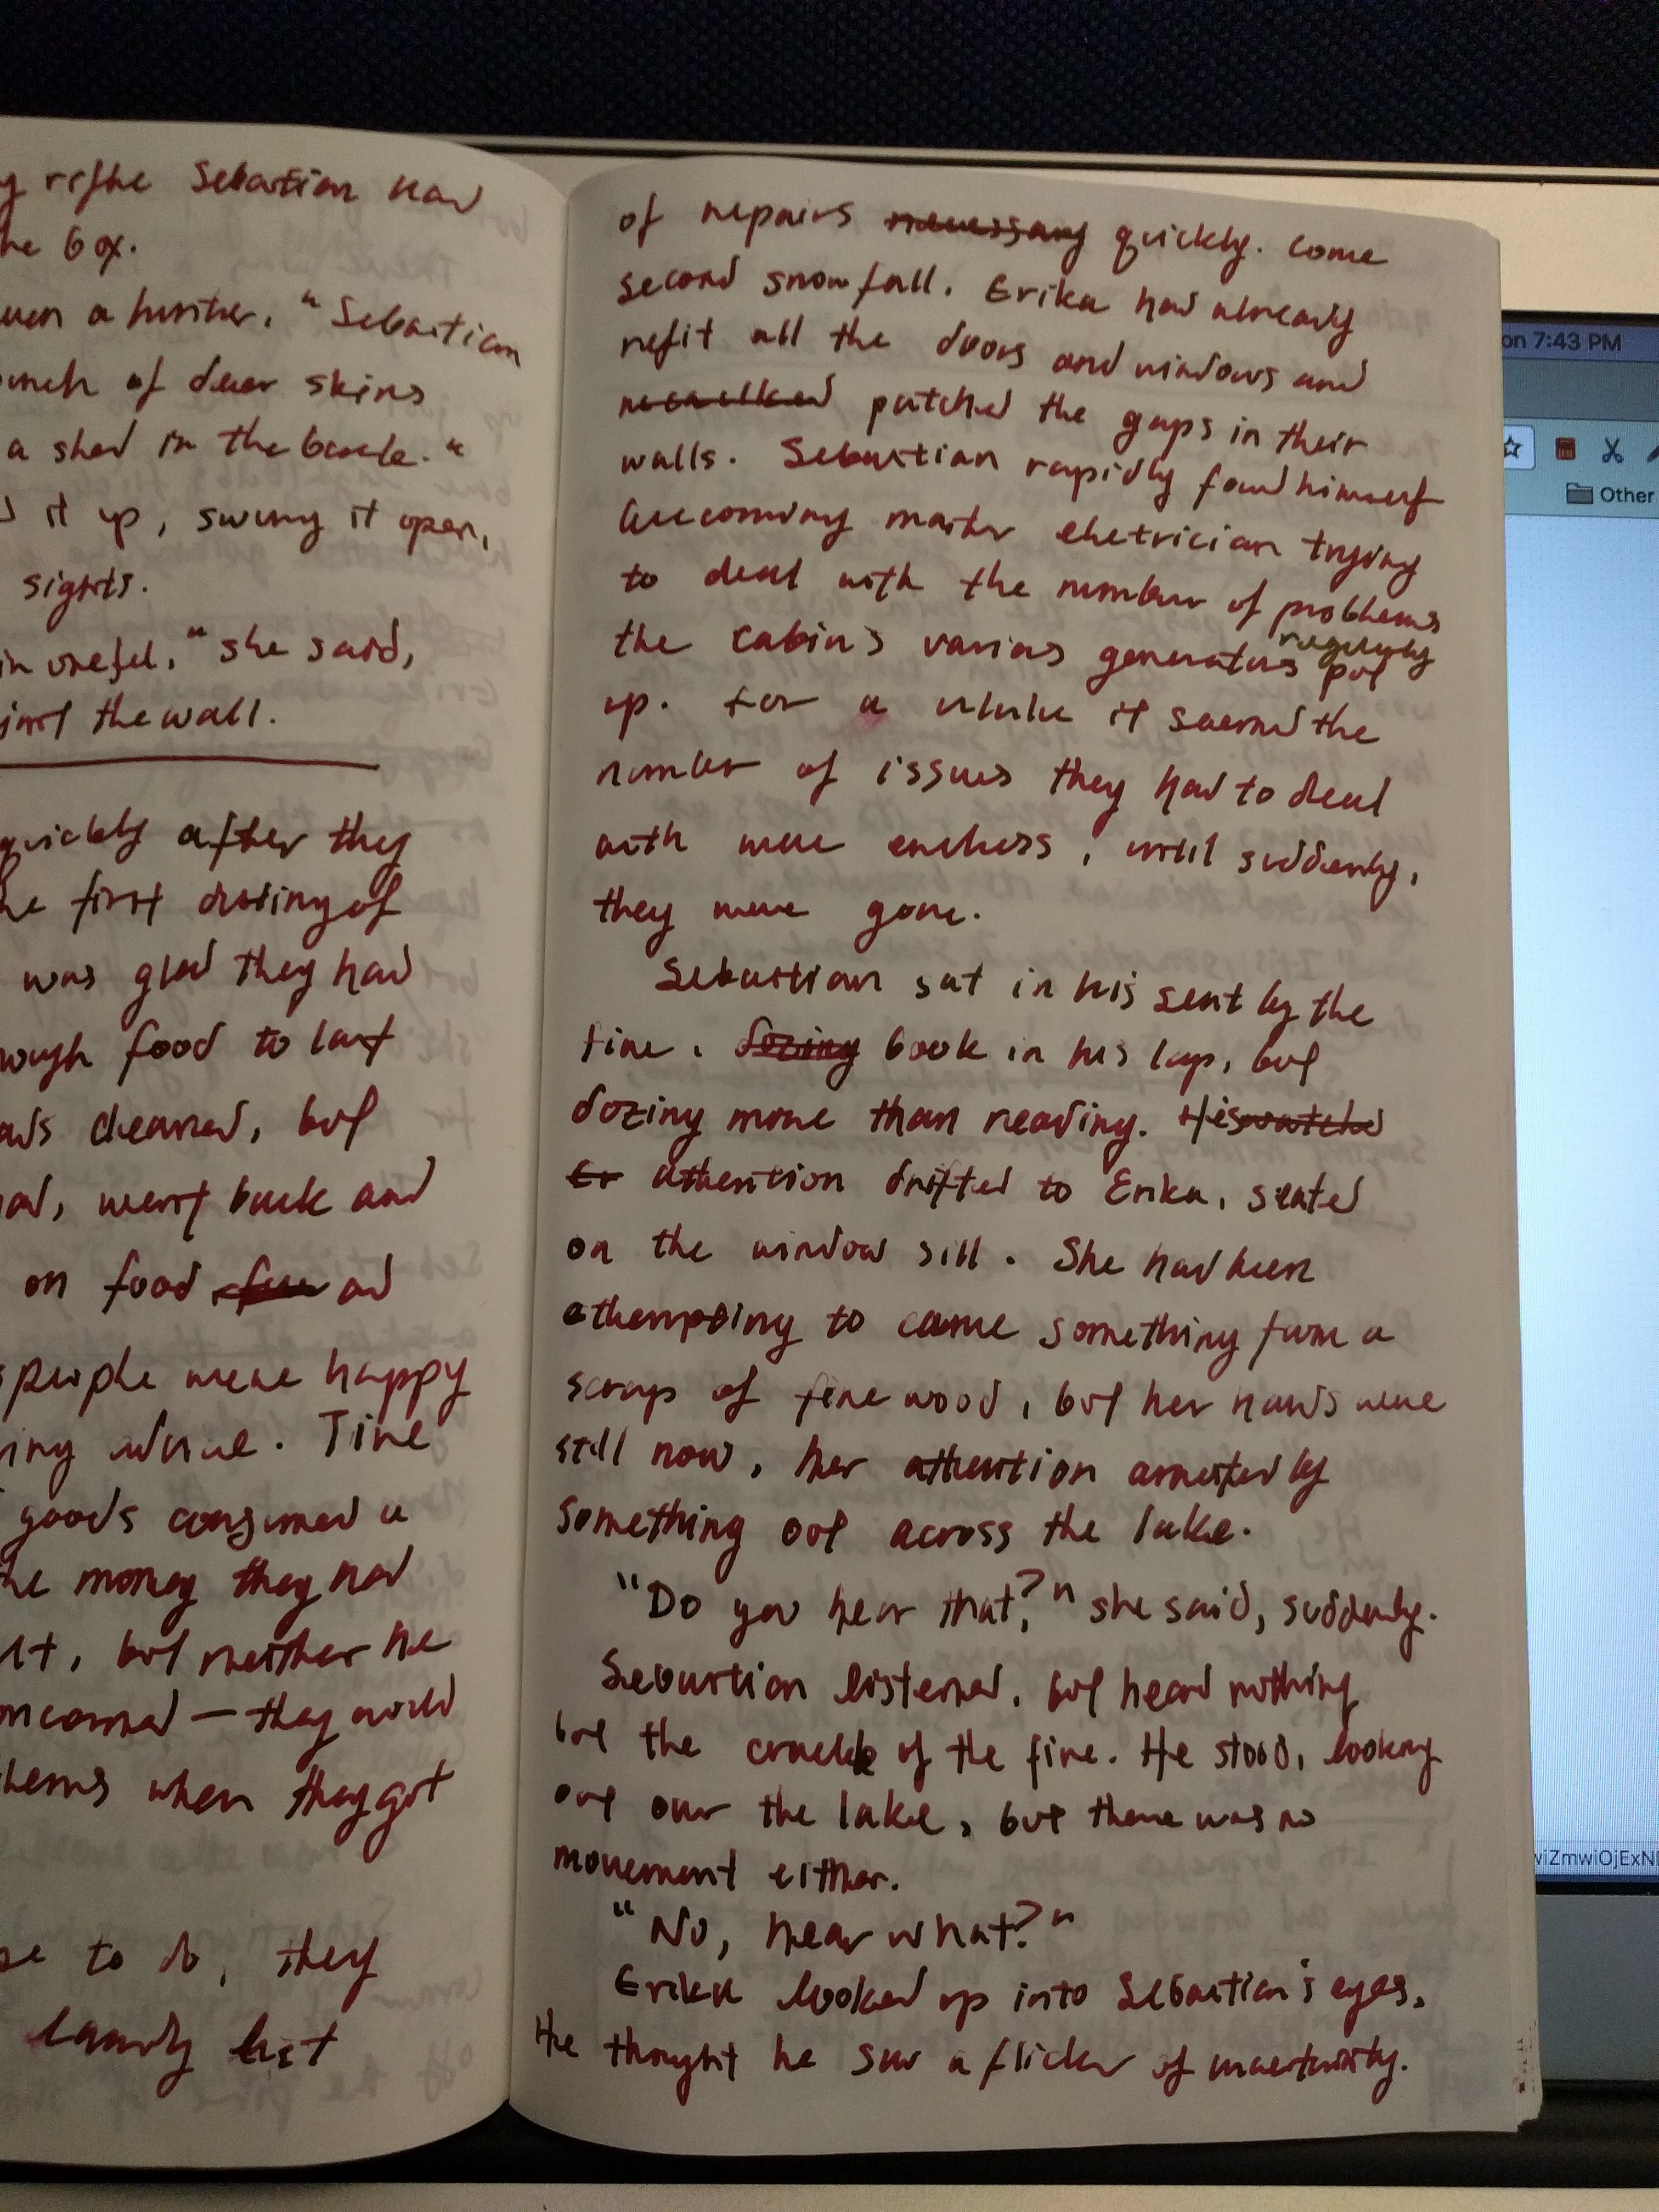 rifle Sebastian had
the box.
even a hunter. "Sebastian
bunch of deer skins
a shed in the back."
it up, swung it open,
sights.
in useful," she said,
the wall.
quickly after they
first dusting of
was glad they had
enough food to last
cleaned, but
went back and
on food ad
people were happy
Tire
goods consumed a
the money they had
but neither he
concerned — they would
when they got
to do, they
laundry list
of repairs necessary quickly. Come
second snowfall. Erika had already
refit all the doors and windows and
recaulked patched the gaps in their
walls. Sebastian rapidly found himself
becoming master eletrician trying
to deal with the number of problems
the cabin's various generators regularly put
up. For a while it seemed the
number of issues they had to deal
with were endless, until suddenly,
they were gone.
Sebastian sat in his seat by the
fire. dozing book in his lap, but
dozing more than reading. His watched
Er attention drifted to Erika, seated
on the window sill. She had been
attempting to carve something from a
scrap of fire wood, but her hands were
still now, her attention arrested by
something out across the lake.
"Do you hear that?" she said, suddenly.
Sebastian listened, but heard nothing
but the crackle of the fire. He stood, looking
out over the lake, but there was no
movement either.
"No, hear what?"
Erika looked up into Sebastian's eyes.
He thought he saw a flicker of uncertainty.
on 7:43 PM
Other